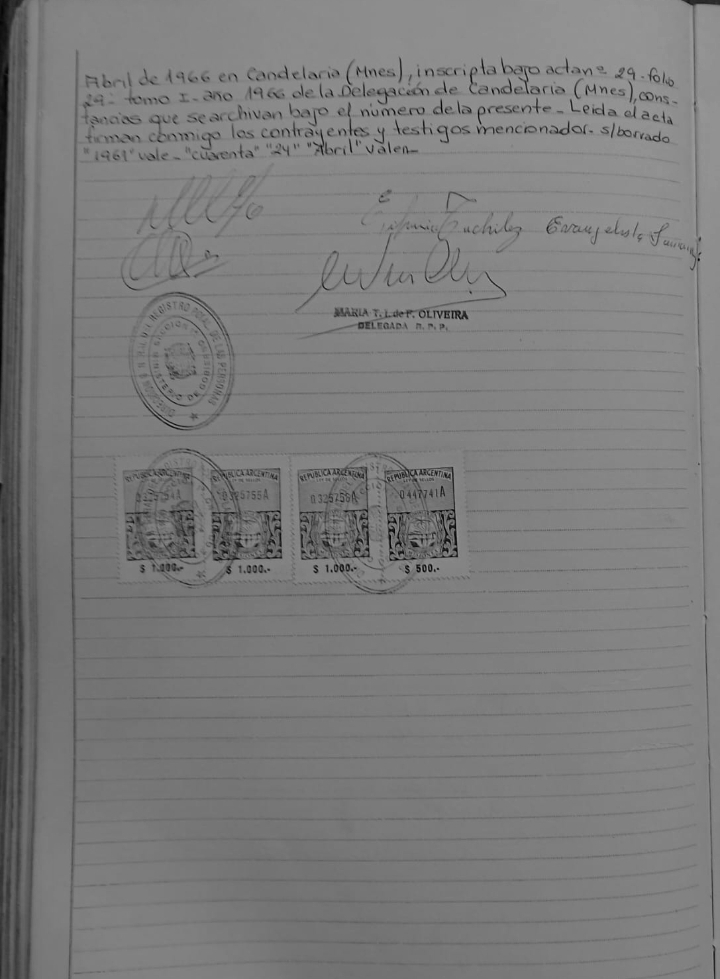 Abril de 1966 en Candelaria (Mnes), inscripta bajo acta nº 29- folio
29- tomo I- año 1966 de la Delegación de Candelaria (Mnes), cons-
tancias que se archivan bajo el número de la presente- Leida el acta
firman conmigo los contrayentes y testigos mencionador- s/borrado
"1961" vale- "cuarenta" "24" "Abril" valen-
Evangelista
MARIA T. I. de P. OLIVEIRA
DELEGADA R. P. P.
REGISTRO PCIAL. DE LAS PERSONAS
REPUBLICA ARGENTINA REPUBLICA ARGENTINA REPUBLICA ARGENTINA REPUBLICA ARGENTINA
0325755A 0447741A
$ 1.000.- $ 1.000.- $ 1.000.- $ 500.-